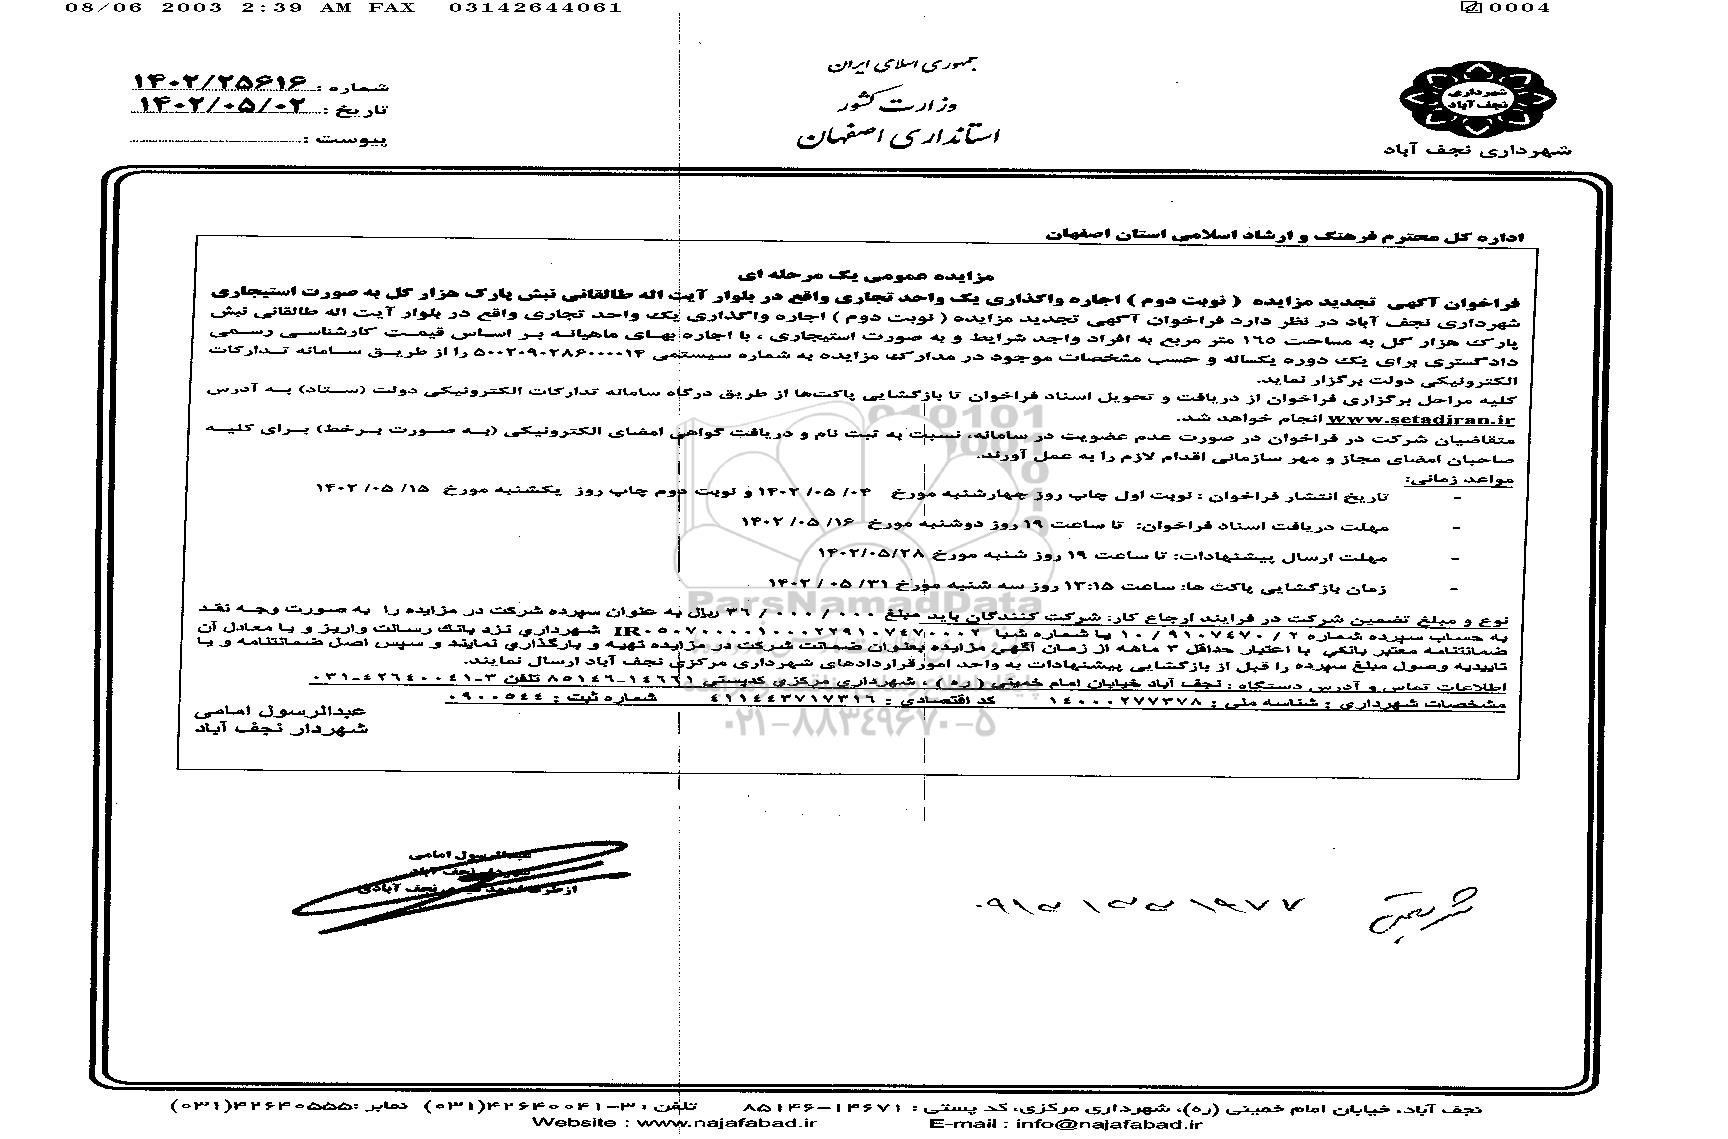 08/06 2003 2:39 AM FAX 03142644061 0004
جمهوری اسلامی ایران
وزارت کشور
استانداری اصفهان
شهرداری نجف آباد
شهرداری نجف آباد
شماره : ۱۴۰۲/۲۵۶۱۶
تاریخ : ۱۴۰۲/۰۵/۰۲
پیوست :
اداره کل محترم فرهنگ و ارشاد اسلامی استان اصفهان
مزایده عمومی یک مرحله ای
فراخوان آگهی تجدید مزایده ( نوبت دوم ) اجاره واگذاری یک واحد تجاری واقع در بلوار آیت اله طالقانی نبش پارک هزار گل به صورت استیجاری
شهرداری نجف آباد در نظر دارد فراخوان آگهی تجدید مزایده ( نوبت دوم ) اجاره واگذاری یک واحد تجاری واقع در بلوار آیت اله طالقانی نبش
پارک هزار گل به مساحت ۱٦٥ متر مربع به افراد واجد شرایط و به صورت استیجاری ، با اجاره بهای ماهیانه بر اساس قیمت کارشناسی رسمی
دادگستری برای یک دوره یکساله و حسب مشخصات موجود در مدارک مزایده به شماره سیستمی ۵۰۰۲۰۹۰۲۸۶۰۰۰۰۱۴ را از طریق سامانه تدارکات
الکترونیکی دولت برگزار نماید.
کلیه مراحل برگزاری فراخوان از دریافت و تحویل اسناد فراخوان تا بازگشایی پاکت‌ها از طریق درگاه سامانه تدارکات الکترونیکی دولت (ستاد) به آدرس
www.setadiran.ir انجام خواهد شد.
متقاضیان شرکت در فراخوان در صورت عدم عضویت در سامانه، نسبت به ثبت نام و دریافت گواهی امضای الکترونیکی (به صورت برخط) برای کلیه
صاحبان امضای مجاز و مهر سازمانی اقدام لازم را به عمل آورند.
مواعد زمانی:
- تاریخ انتشار فراخوان : نوبت اول چاپ روز چهارشنبه مورخ ۰۴/ ۰۵/ ۱۴۰۲ و نوبت دوم چاپ روز یکشنبه مورخ ۱۵/ ۰۵/ ۱۴۰۲
- مهلت دریافت اسناد فراخوان: تا ساعت ۱۹ روز دوشنبه مورخ ۱۶/ ۰۵/ ۱۴۰۲
- مهلت ارسال پیشنهادات: تا ساعت ۱۹ روز شنبه مورخ ۱۴۰۲/۰۵/۲۸
- زمان بازگشایی پاکت ها: ساعت ۱۳:۱۵ روز سه شنبه مورخ ۳۱/ ۰۵ / ۱۴۰۲
نوع و مبلغ تضمین شرکت در فرایند ارجاع کار: شرکت کنندگان باید مبلغ ۰۰۰ / ۰۰۰ / ۳۶ ریال به عنوان سپرده شرکت در مزایده را به صورت وجه نقد
به حساب سپرده شماره ۲ / ۹۱۰۷۴۷۰ / ۱۰ با شماره شبا IR۰۵۰۷۰۰۰۰۱۰۰۰۲۲۹۱۰۷۴۷۰۰۰۲ شهرداری نزد بانک رسالت واریز و یا معادل آن
ضمانتنامه معتبر بانکی با اعتبار حداقل ۳ ماهه از زمان آگهی مزایده بعنوان ضمانت شرکت در مزایده تهیه و بارگذاری نمایند و سپس اصل ضمانتنامه و یا
تاییدیه وصول مبلغ سپرده را قبل از بازگشایی پیشنهادات به واحد امورقراردادهای شهرداری مرکزی نجف آباد ارسال نمایند.
اطلاعات تماس و آدرس دستگاه : نجف آباد خیابان امام خمینی (ره) ، شهرداری مرکزی کدپستی ۱۴۶۷۱-۸۵۱۴۶ تلفن ۳-۴۲۶۴۰۰۴۱-۰۳۱
مشخصات شهرداری : شناسه ملی : ۱۴۰۰۰۲۷۷۳۷۸ کد اقتصادی : ۴۱۱۴۴۳۷۱۷۳۱۶ شماره ثبت : ۰۹۰۰۵۴۴
عبدالرسول امامی
شهردار نجف آباد
ParsNamadData
۰۲۱-۸۸۳۴۹۶۷۰-۵
عبدالرسول امامی
شهردار نجف آباد
نجف آباد، خیابان امام خمینی (ره)، شهرداری مرکزی، کد پستی : ۱۴۶۷۱-۸۵۱۴۶ تلفن : ۳-۴۲۶۴۰۰۴۱(۰۳۱) نمابر :۴۲۶۴۰۵۵۵(۰۳۱)
Website : www.najafabad.ir E-mail : info@najafabad.ir